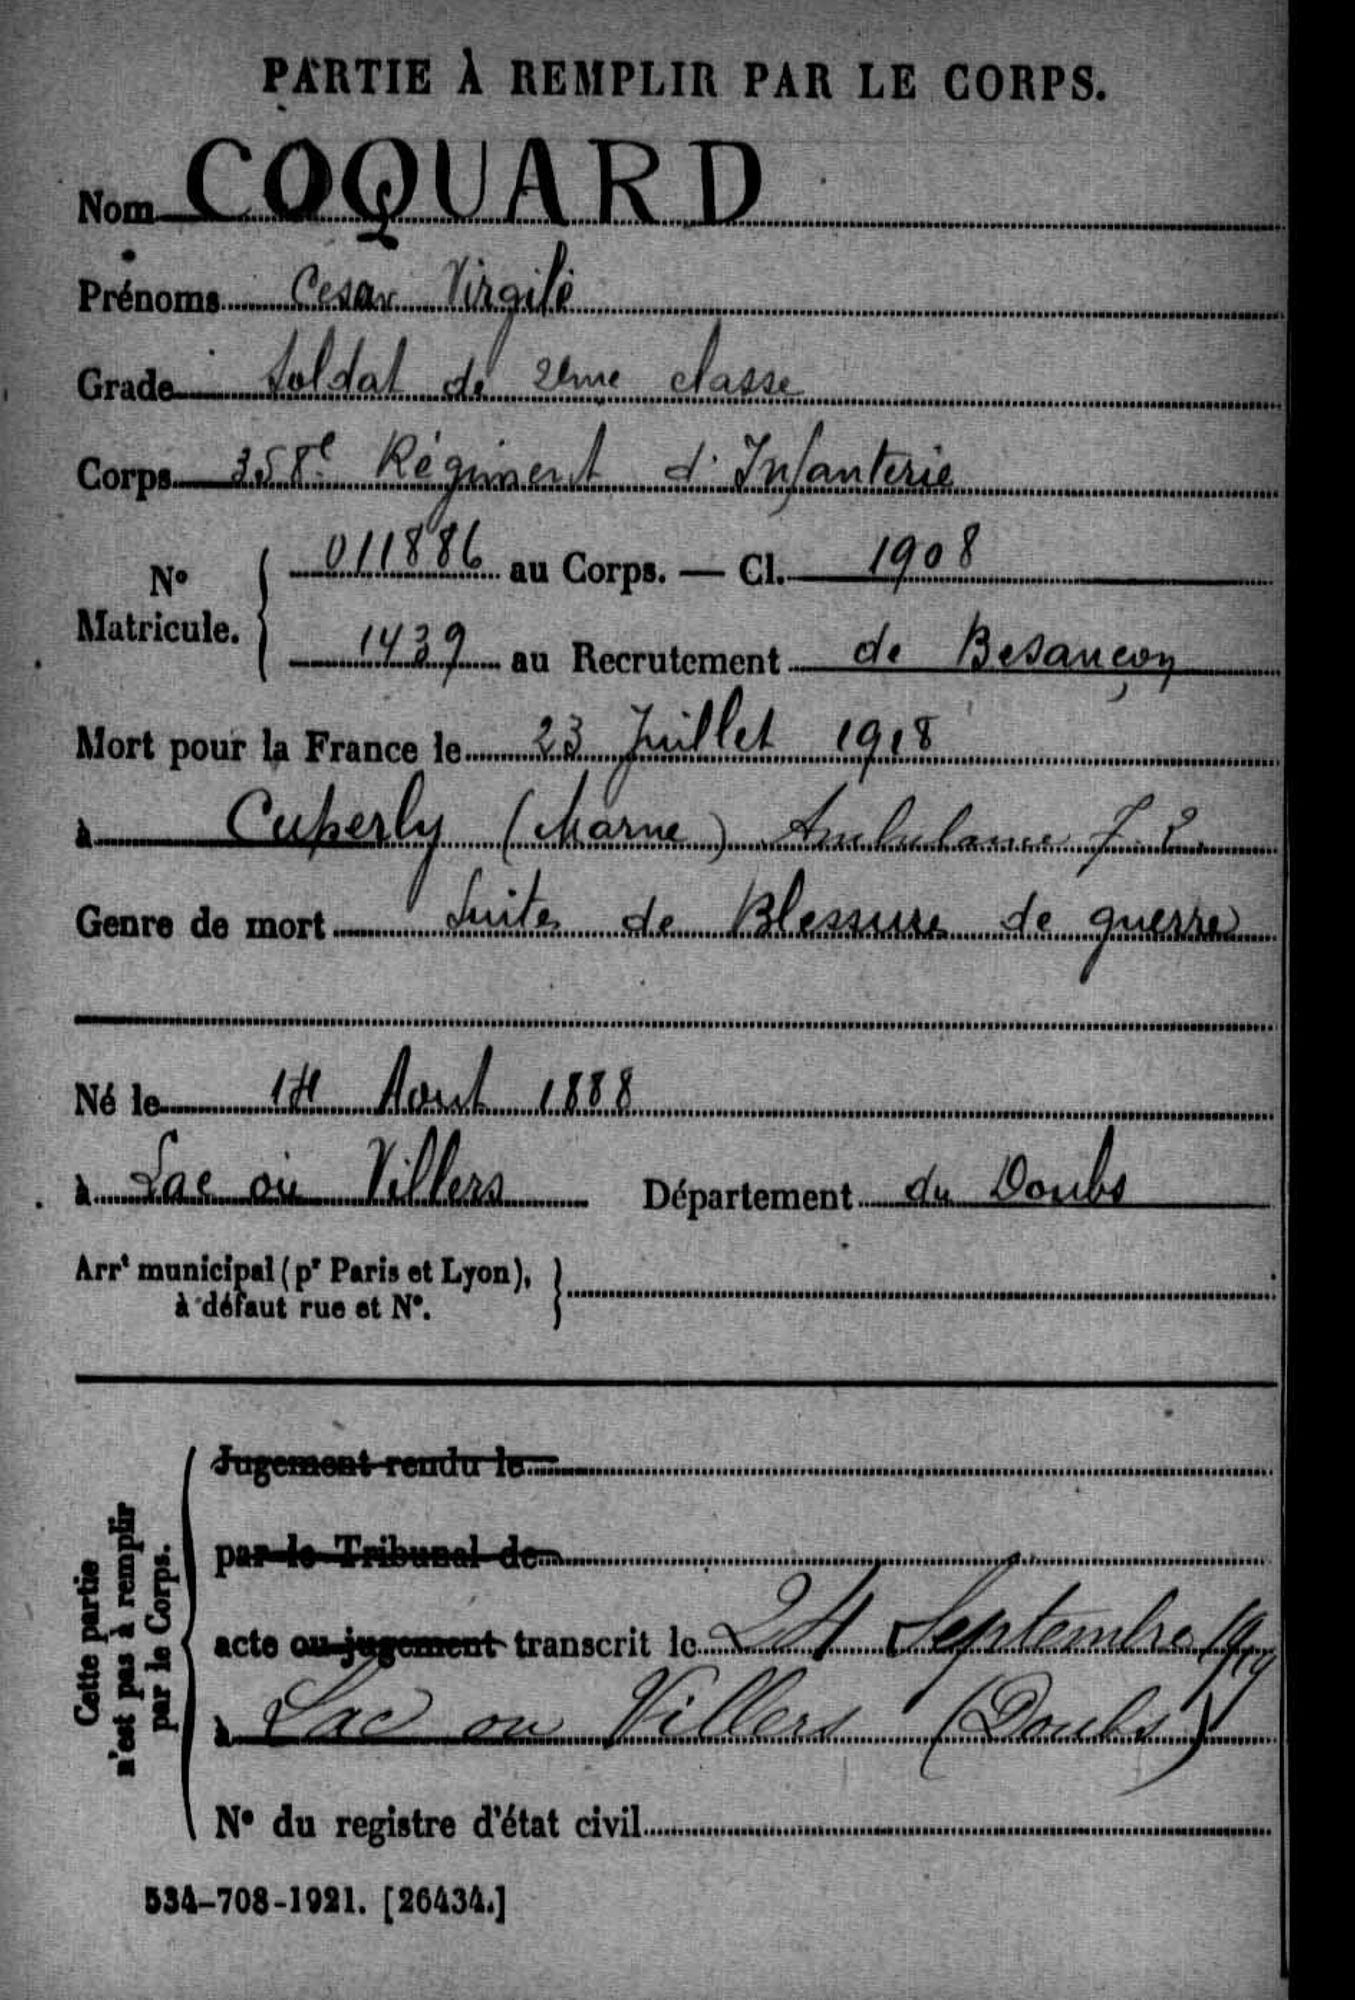 PARTIE À REMPLIR PAR LE CORPS.
Nom COQUARD
Prénoms Cesar Virgile
Grade Soldat de 2eme classe
Corps 358e Régiment d'Infanterie
N° Matricule. 011886 au Corps. — Cl. 1908
1439 au Recrutement de Besançon
Mort pour la France le 23 Juillet 1918
à Cuperly (Marne) Ambulance
Genre de mort Suites de Blessure de guerre
Né le 14 Aout 1888
à Lac ou Villers Département du Doubs
Arrt municipal (pr Paris et Lyon),
à défaut rue et N°.
Cette partie
n'est pas à remplir
par le Corps.
Jugement rendu le
par le Tribunal de
acte ou jugement transcrit le 24 Septembre 1919
à Lac ou Villers (Doubs)
N° du registre d'état civil
534-708-1921. [26434.]